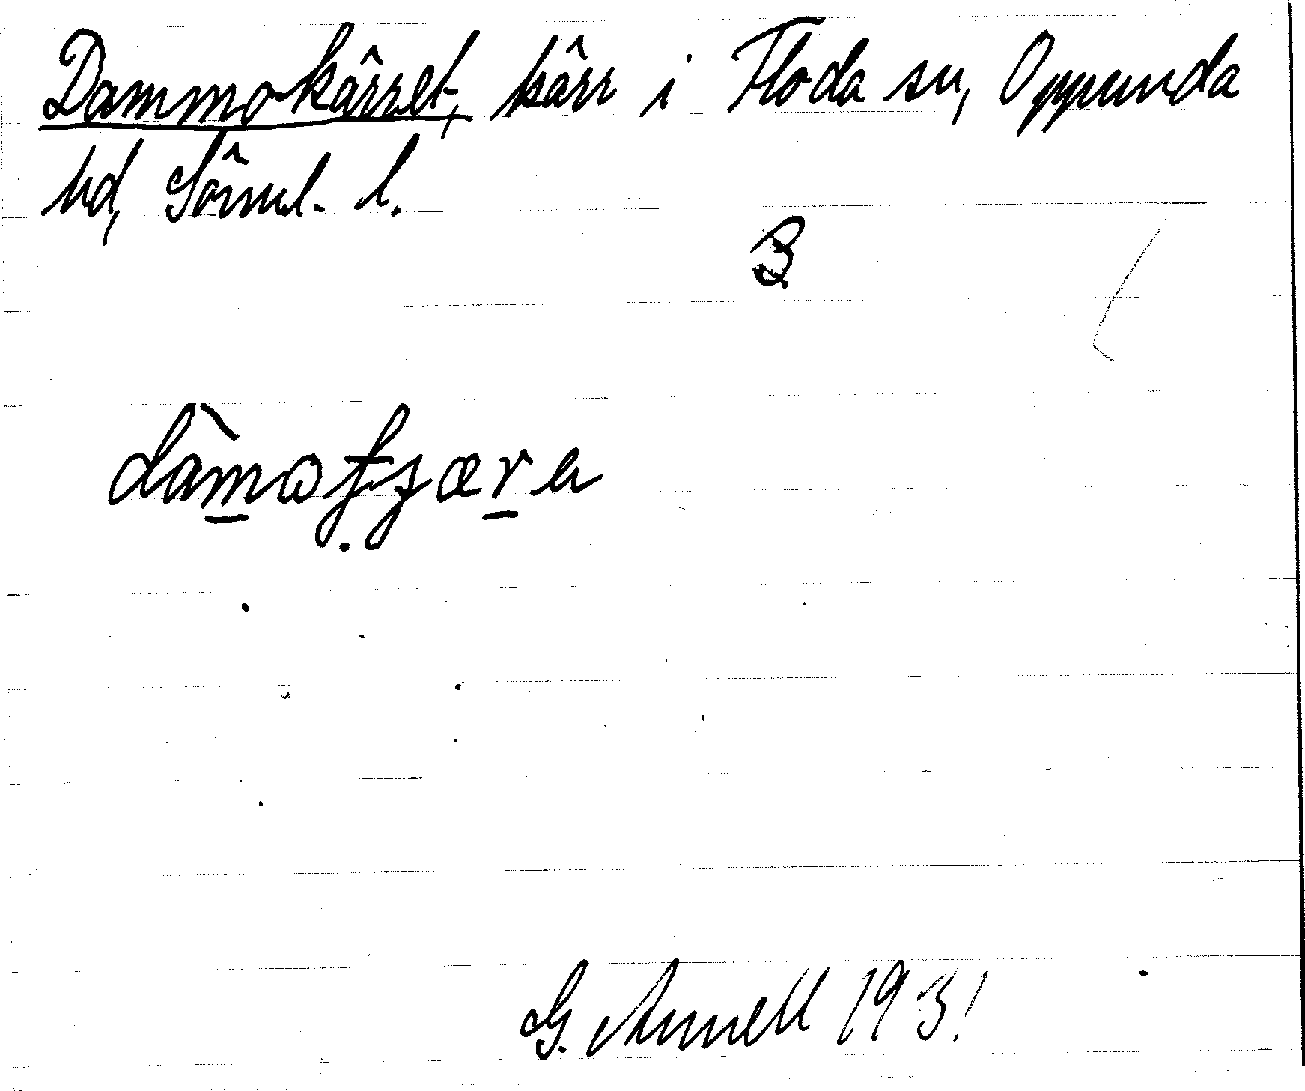 Dammokärret, kärr i Floda sn, Oppunda
hd, Söml. l.
B
G. Annell 1931